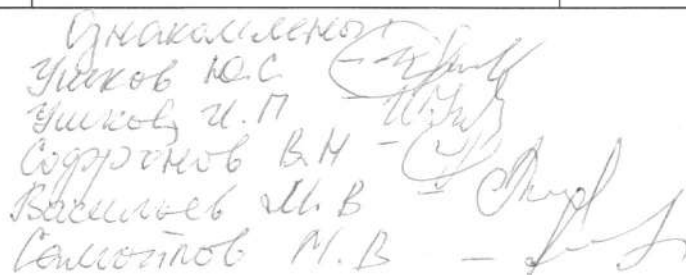 Ознакомлены:
Ушков Ю.С.
Ушков И.П
Софронов В.Н -
Васильев М.В -
Самойлов М.В -